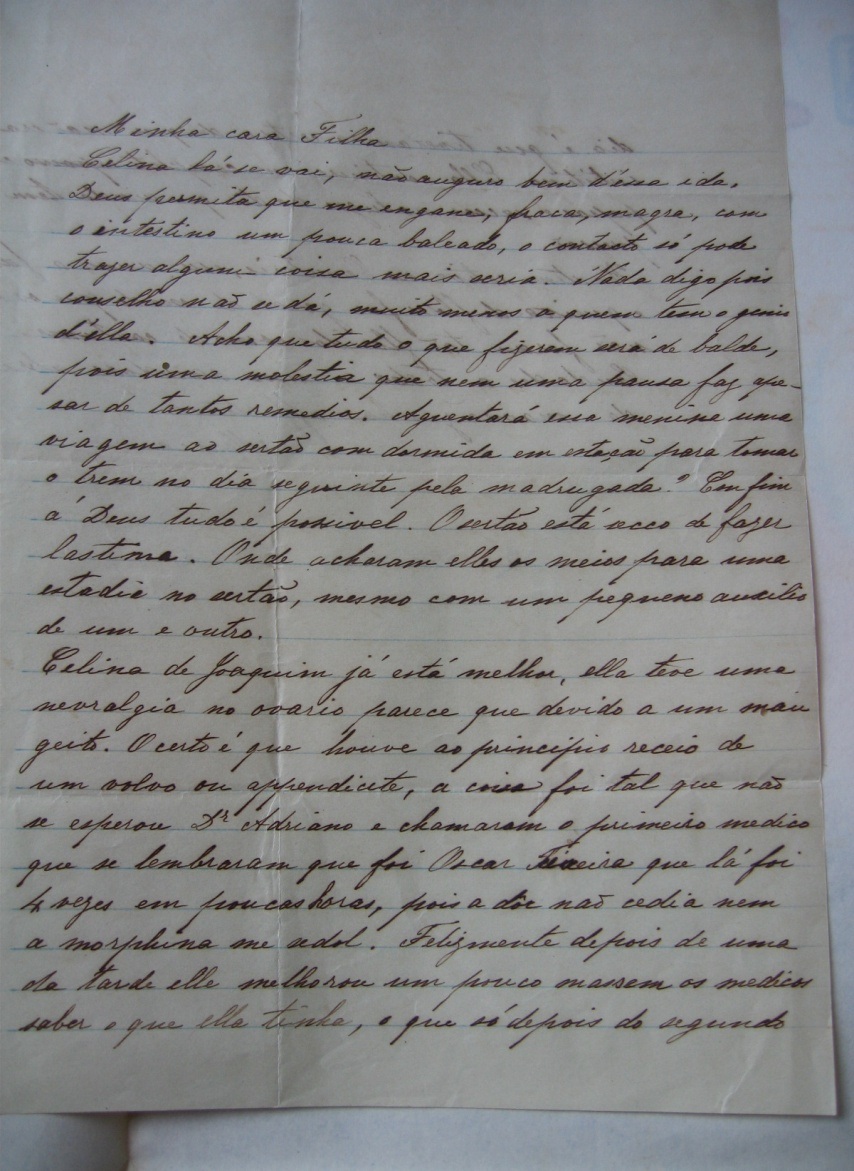 Minha cara Filha
Celina lá se vai, não auguro bem d'essa ida,
Deus permita que me engane, fraca, magra, com
o intestino um pouca baleado, o contacto só pode
trazer alguma coisa mais seria. Nada digo pois
conselho não se dá, muito menos a quem tem o genio
d'ella. Acho que tudo o que fizerem será de balde,
pois uma molestia que nem uma pausa faz ape-
sar de tantos remedios. Aguentará essa menina uma
viagem ao sertão com dormida em estação para tomar
o trem no dia seguinte pela madrugada? Em fim
á Deus tudo é possivel. O sertão está secco de fazer
lastima. Onde acharam elles os meios para uma
estadia no sertão, mesmo com um pequeno auxilio
de um e outro.
Celina de Joaquim já está melhor, ella teve uma
nevralgia no ovario parece que devido a um mau
geito. O certo é que houve ao principio receio de
um volvo ou appendicite, a coisa foi tal que não
se esperou Dr Adriano e chamaram o primeiro medico
que se lembraram que foi Oscar Teixeira que lá foi
4 vezes em poucas horas, pois a dôr não cedia nem
a morphina nem sedol. Felizmente depois de uma
da tarde ella melhorou um pouco mas sem os medicos
saber o que ella tinha, o que só depois do segundo